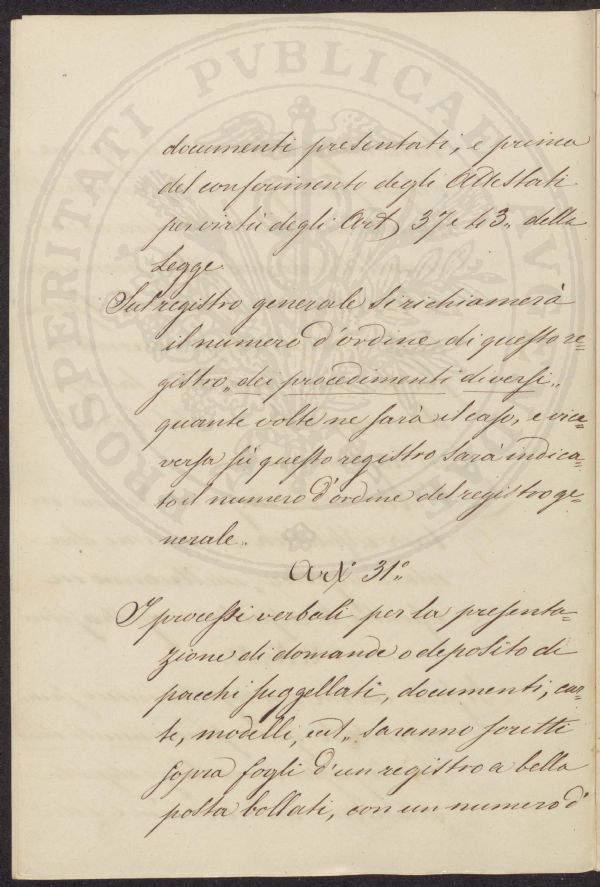 PROSPERITATI PVBLICAE AVGENDAE
documenti presentati, e prima
del conferimento degli Attestati
per virtù degli Art 37 e 43,, della
Legge
Sul registro generale si richiamerà
il numero d'ordine di questo re=
gistro,, dei procedimenti diversi,,
quante volte ne sarà il caso, e vice=
versa su questo registro sarà indica=
to il numero d'ordine del registro ge=
nerale.
Art° 31°
I processi verbali per la presenta=
zione di domande o deposito di
pacchi suggellati, documenti, car=
te, modelli, ect,, saranno scritti
sopra fogli d'un registro a bella
posta bollati, con un numero d'